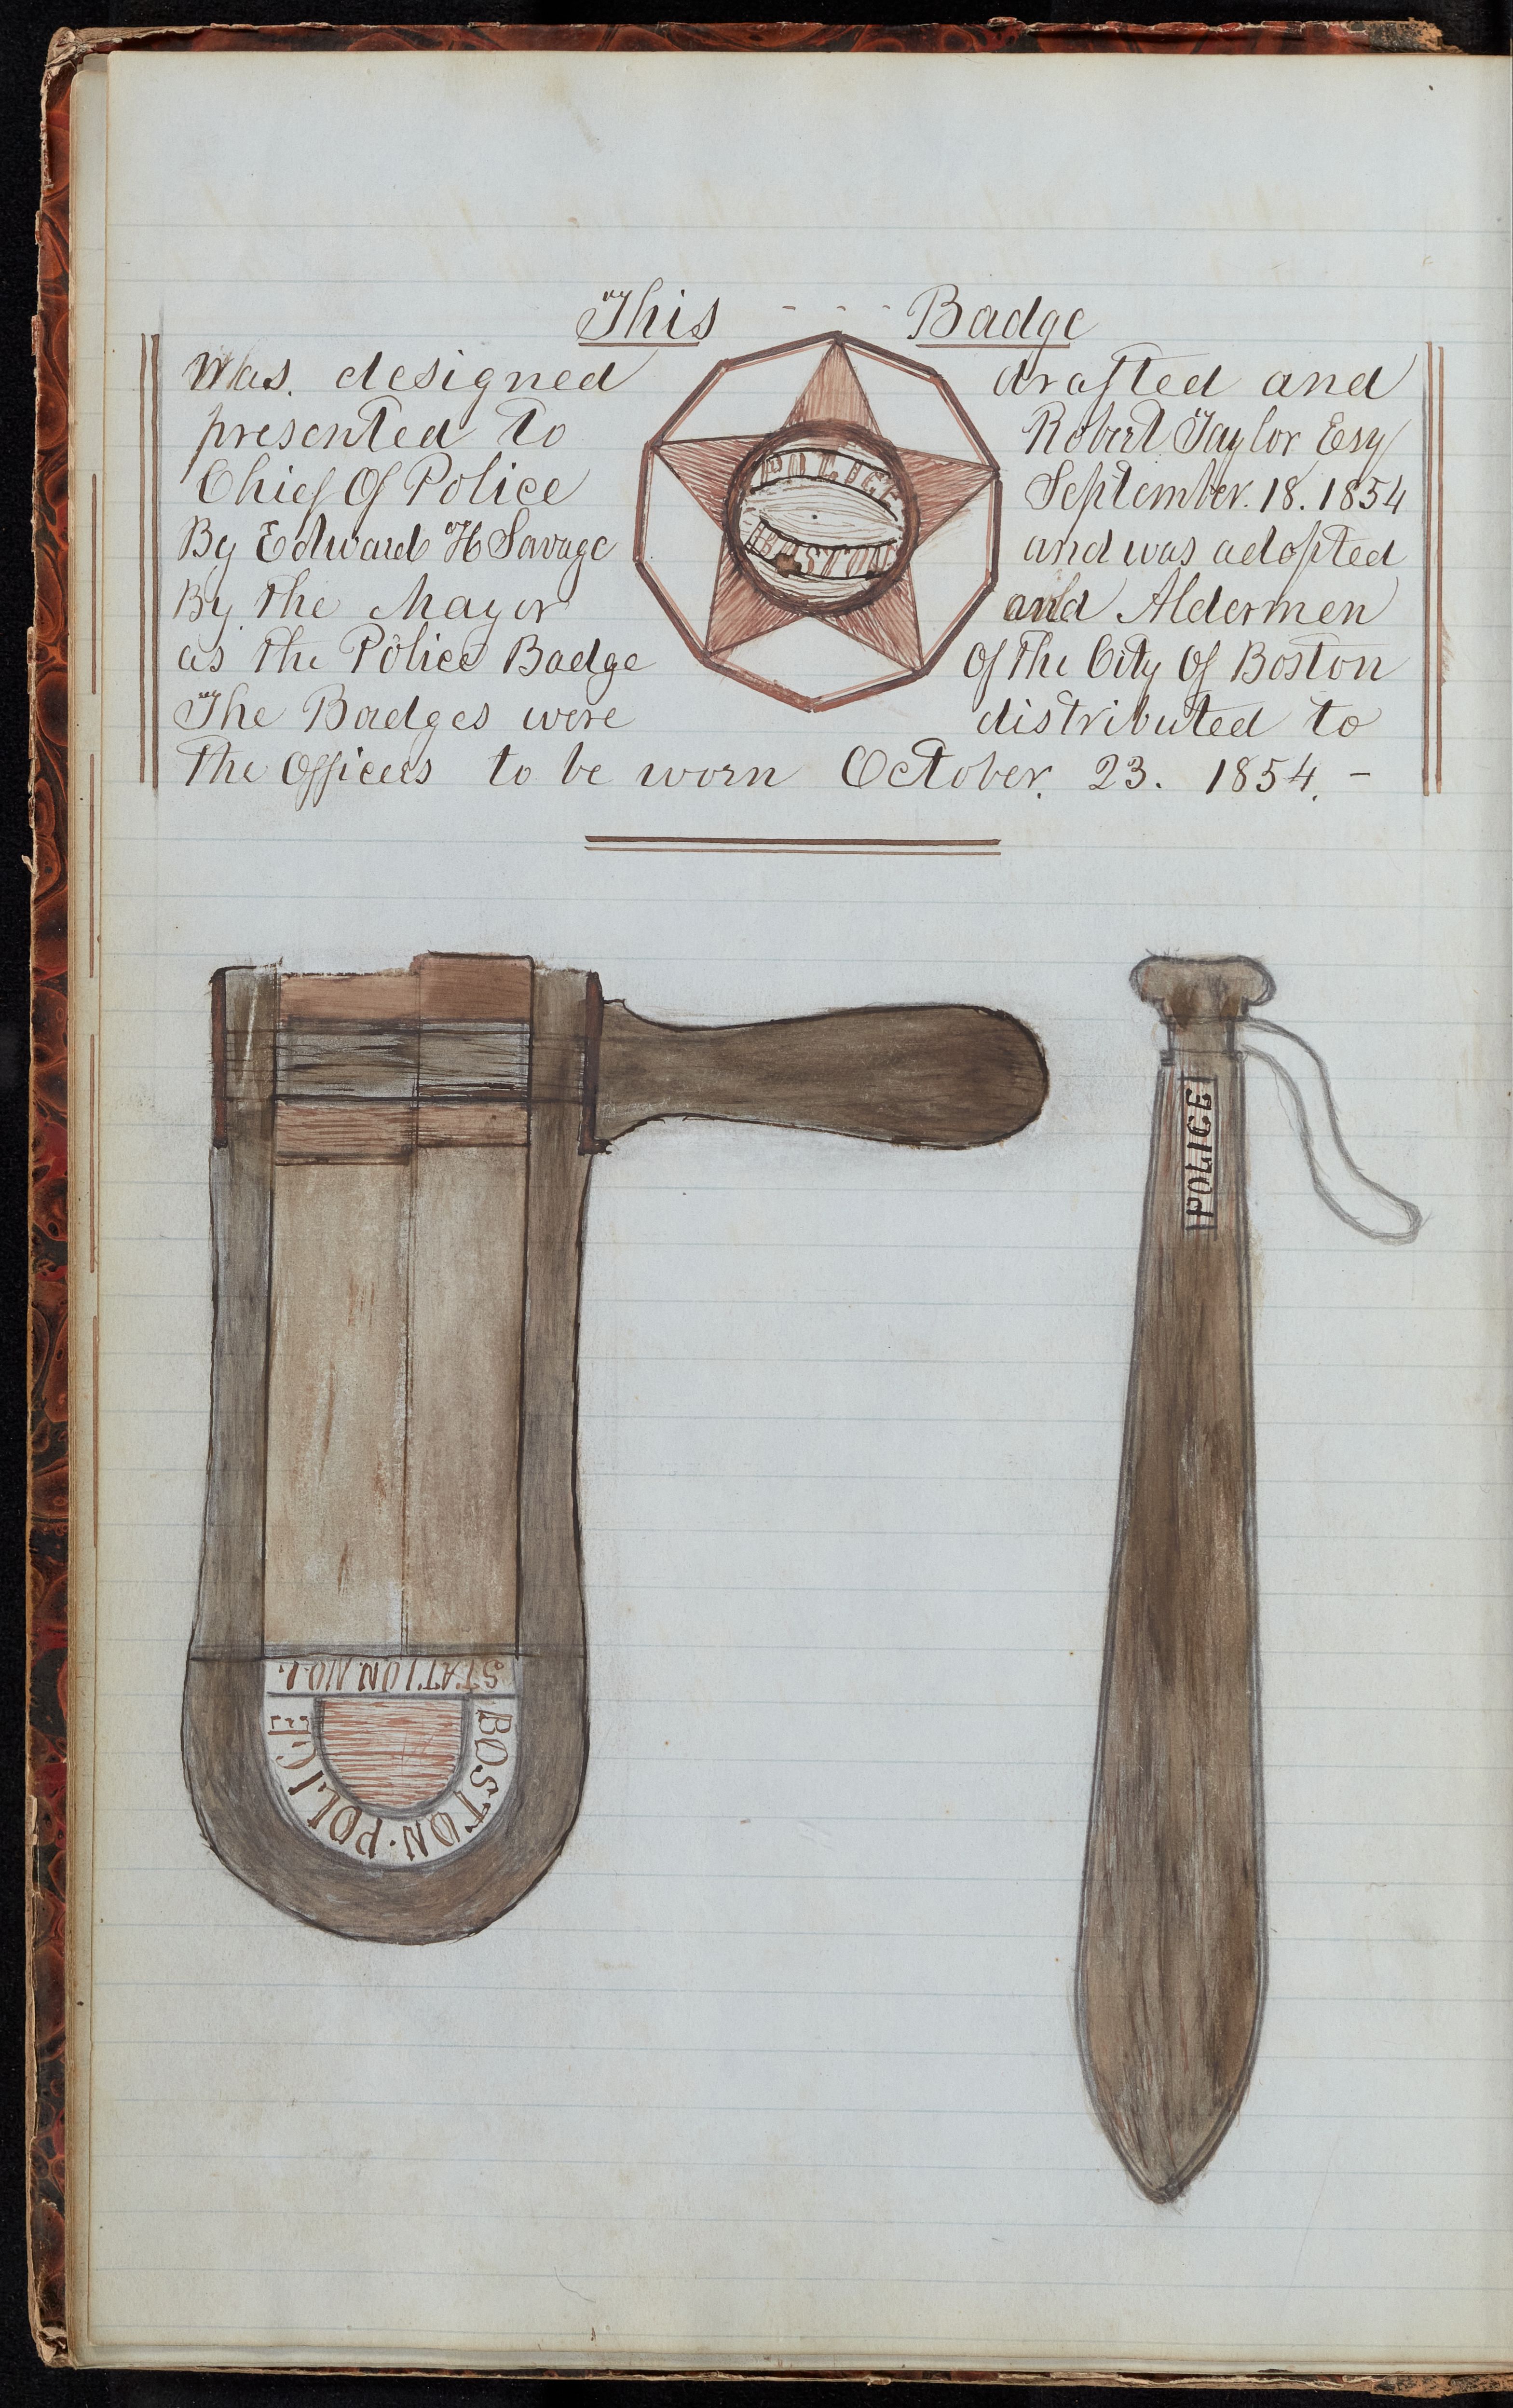 This - - - Badge
Was. designed drafted and
presented to Robert Taylor Esq
Chief Of Police September. 18. 1854
By Edward H Savage and was adopted
By. the Mayor and Aldermen
as the Police Badge Of the City Of Boston
The Badges were distributed to
the Officers to be worn October. 23. 1854. -
POLICE
BOSTON
POLICE
STATION. NO. 1.
BOSTON. POLICE